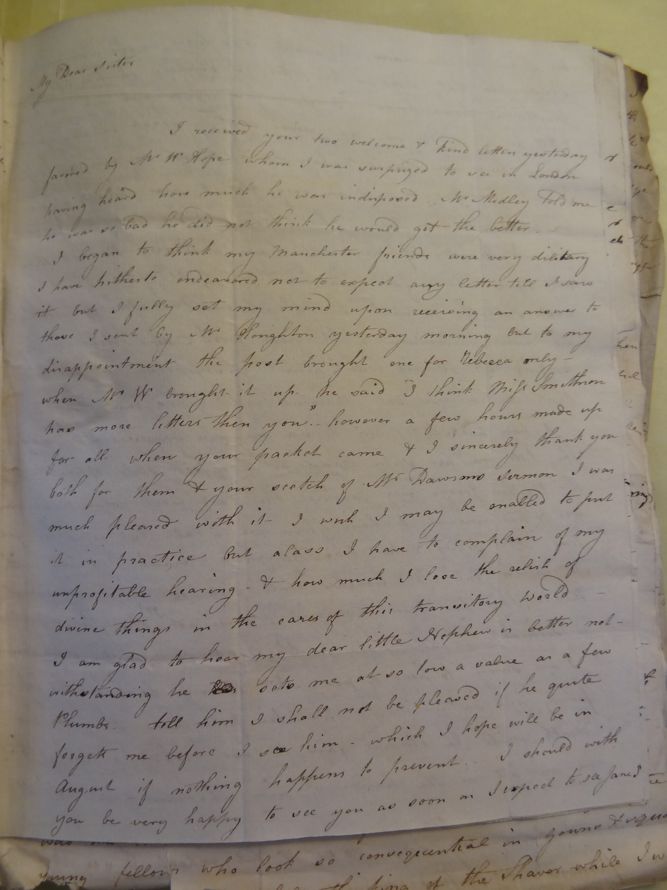 My Dear Sister
I received your two welcome & kind letters yesterday
favored by Mr Wm Hope whom I was surprized to see in London
having heard how much he was indisposed Mr Medley told me
he was so bad he did not think he would get the better
I began to think my Manchester friends were very dilitary
I have hitherto endeavored not to expect any letter till I saw
it but I fully set my mind upon receiving an answer to
those I sent by Mr Houghton yesterday morning but to my
disappointment the post brought one for Rebecca only -
when Mr W brought it up he said "I think Miss Smethurn
has more letters then you" - however a few hours made up
for all when your packet came & I sincerely thank you
both for them & your scetch of Mr Dawsons Sermon I was
much pleased with it - I wish I may be enabled to put
it in practice but alass I have to complain of my
unprofitable hearing - & how much I lose the relish of
divine things in the cares of this transitory world -
I am glad to hear my dear little Nephew is better not-
withstanding he sets me at so low a value as a few
Plumbs - tell him I shall not be pleased if he quite
forgets me before I see him - which I hope will be in
August if nothing happens to prevent - I should with
you be very happy to see you as soon as I expect to
young fellows who look so consequential in
of the Shaver while I